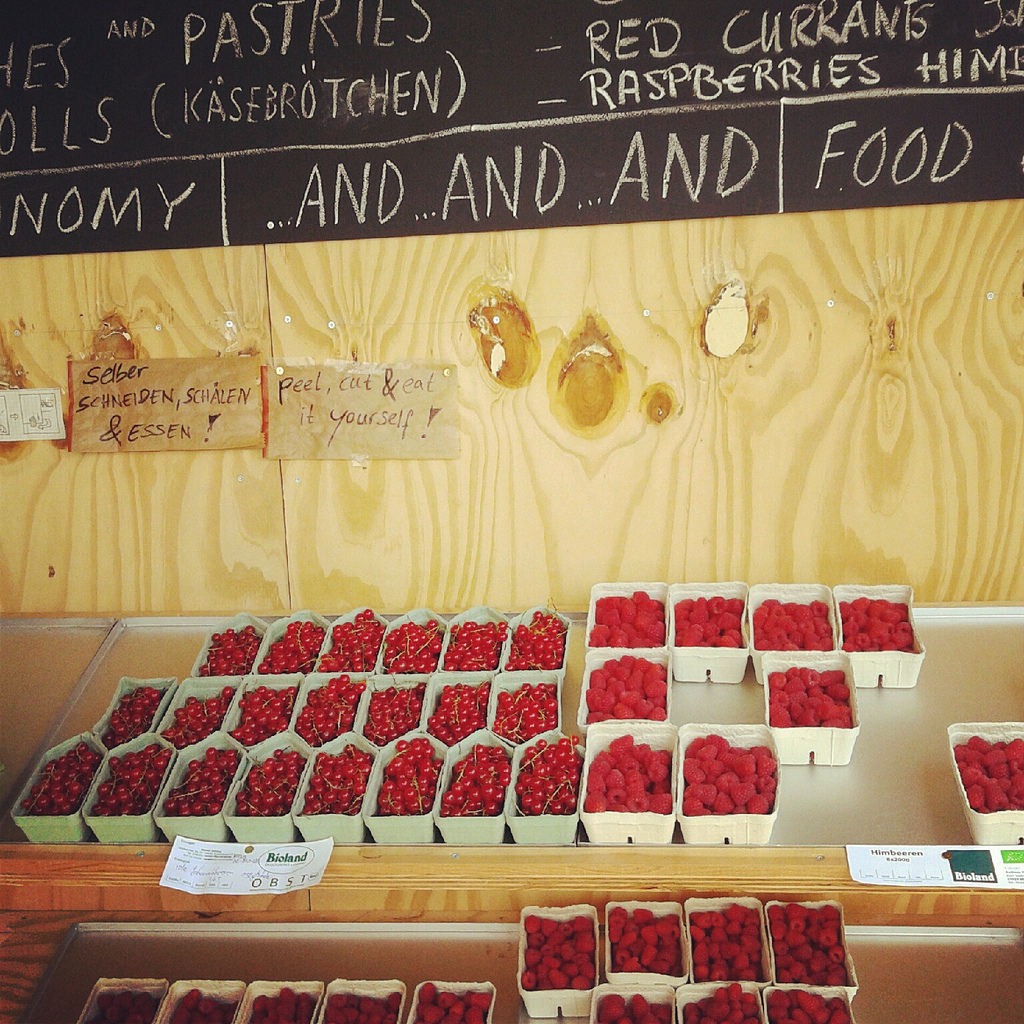 AND PASTRIES
(KÄSEBRÖTCHEN)
- RED CURRANTS
- RASPBERRIES
...AND...AND...AND
FOOD
selber
SCHNEIDEN, SCHÄLEN
& ESSEN!
peel, cut & eat
it yourself!
Bioland
OBST
Himbeeren
8x200g
Bioland